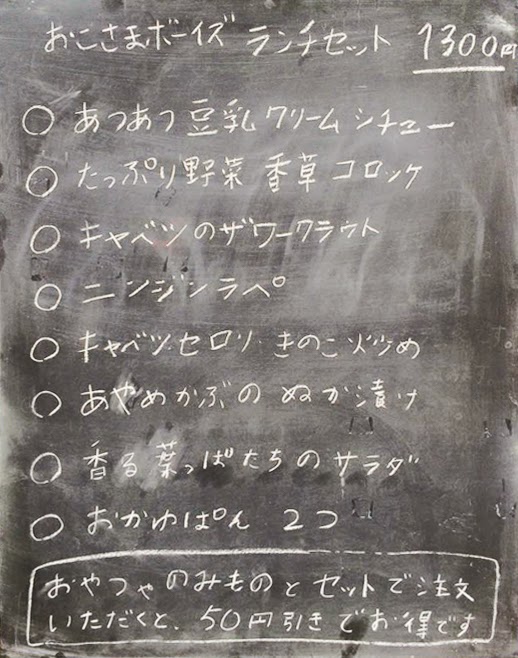 おこさまボーイズ ランチセット 1300円
○ あつあつ豆乳クリームシチュー
○ たっぷり野菜 香草コロッケ
○ キャベツのザワークラウト
○ ニンジンラペ
○ キャベツ・セロリ・きのこ炒め
○ あやめかぶの ぬか漬け
○ 香る葉っぱたちのサラダ
○ おかゆぱん 2つ
おやつやのみものとセットでご注文
いただくと、50円引きでお得です